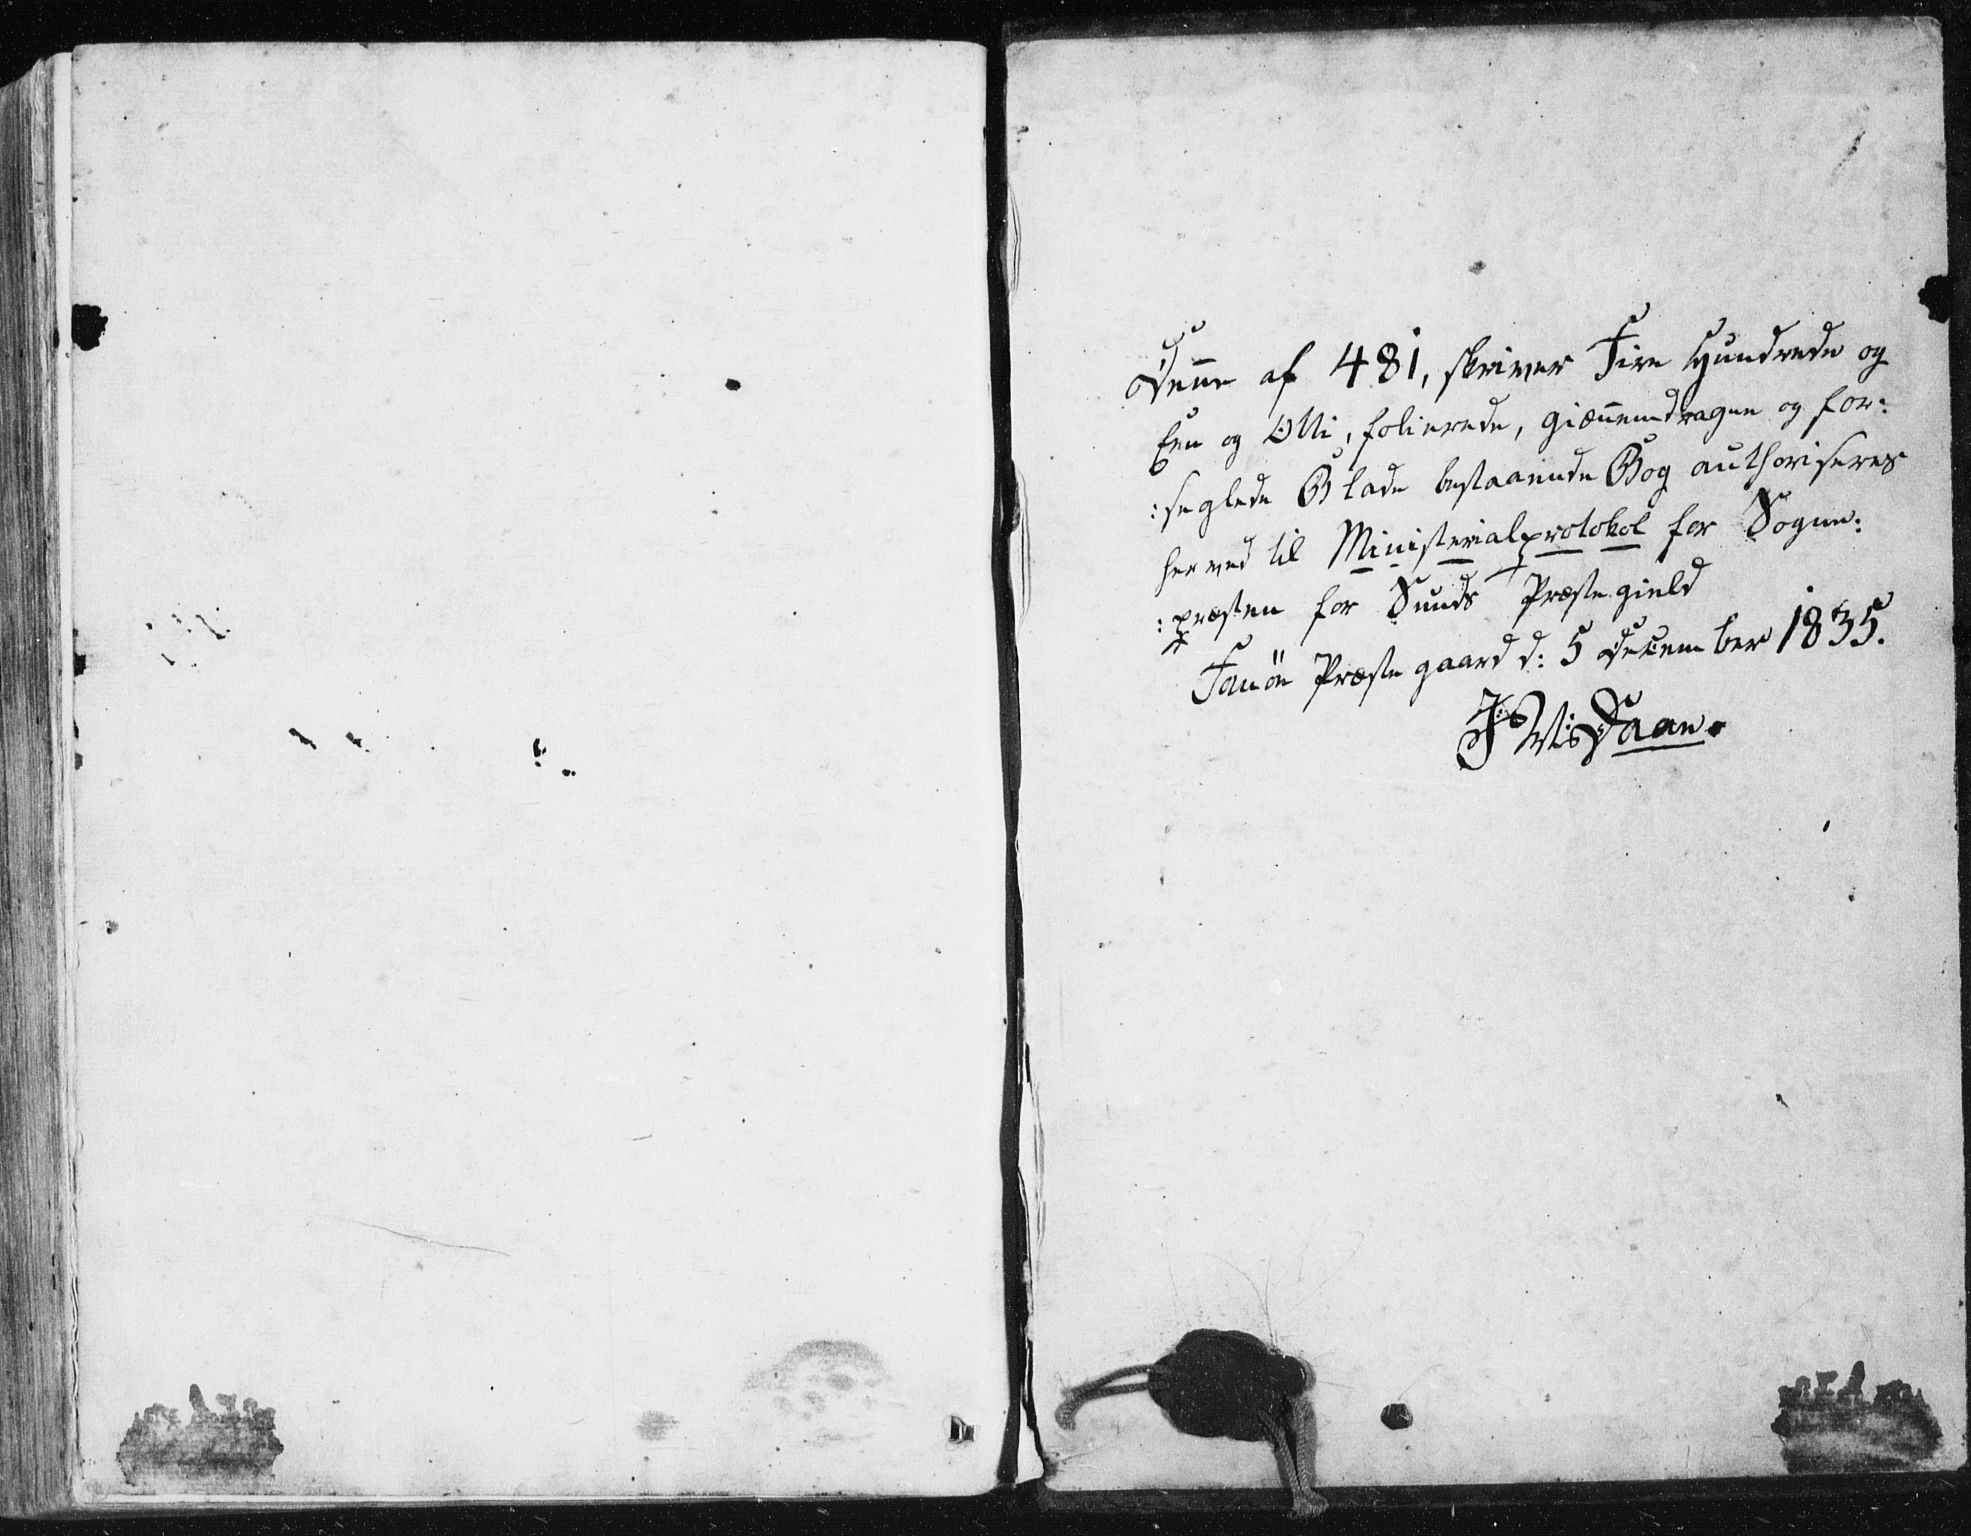 Denne af 481, skriver Fire Hundrede og
Een og Otti, folierede, giæn̄emdragne og for:
:seglede Blade bestaaende Bog authoriseres
herved til Ministerialprotokol for Sogne:
:præsten for Sunds Præstegield
Fanöe Præstegaard d: 5 December 1835.
Daae.